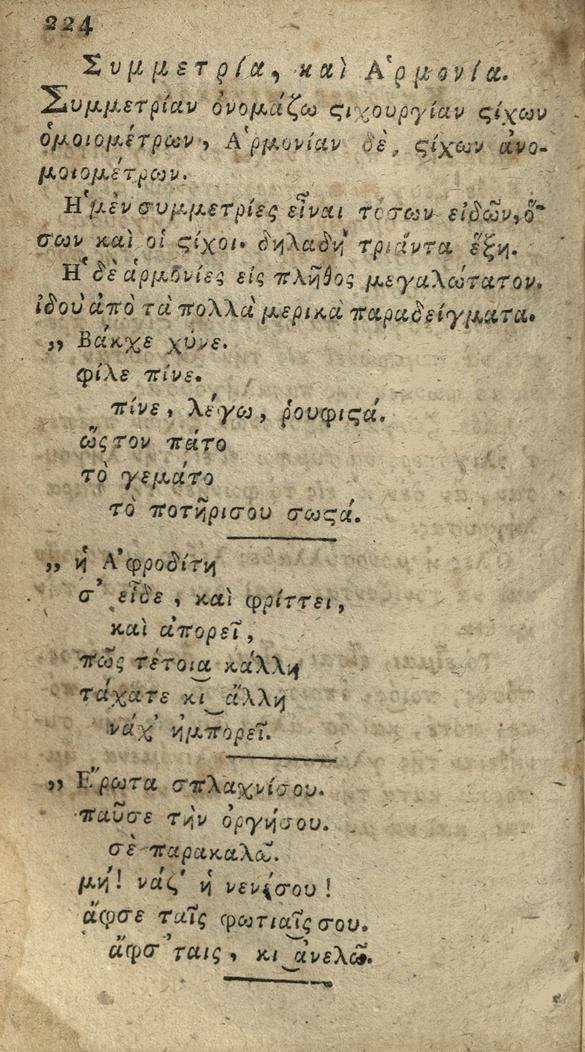 224
Συμμετρία, καὶ Ἁρμονία.
Συμμετρίαν ὀνομάζω ϛιχουργίαν ϛίχων
ὁμοιομέτρων, Ἁρμονίαν δὲ, ϛίχων ἀνο-
μοιομέτρων.
Ἡ μὲν συμμετρίες εἶναι τόσων εἰδῶν, ὅ-
σων καὶ οἱ ϛίχοι. δηλαδὴ τριάντα ἕξη.
Ἡ δὲ ἁρμονίες εἰς πλῆθος μεγαλώτατον.
ἰδοὺ ἀπὸ τὰ πολλὰ μερικὰ παραδείγματα.
„ Βάκχε χύνε.
φίλε πίνε.
πίνε, λέγω, ῥουφιϛά.
ὥϛ τον πάτο
τὸ γεμάτο
τὸ ποτῆρισου σωϛά.
„ ἡ Ἀφροδίτη
σ' εἶδε, καὶ φρίττει,
καὶ ἀπορεῖ,
πῶς τέτοια κάλλη
τάχατε κι ἄλλη
νάχ' ἠμπορεῖ.
„ Ἔρωτα σπλαχνίσου.
παῦσε τὴν ὀργήσου.
σὲ παρακαλῶ.
μή! νάζ' ἡ νενέσου!
ἄφσε ταῖς φωτιαῖς σου.
ἄφσ' ταις, κι ἀνελῶ.